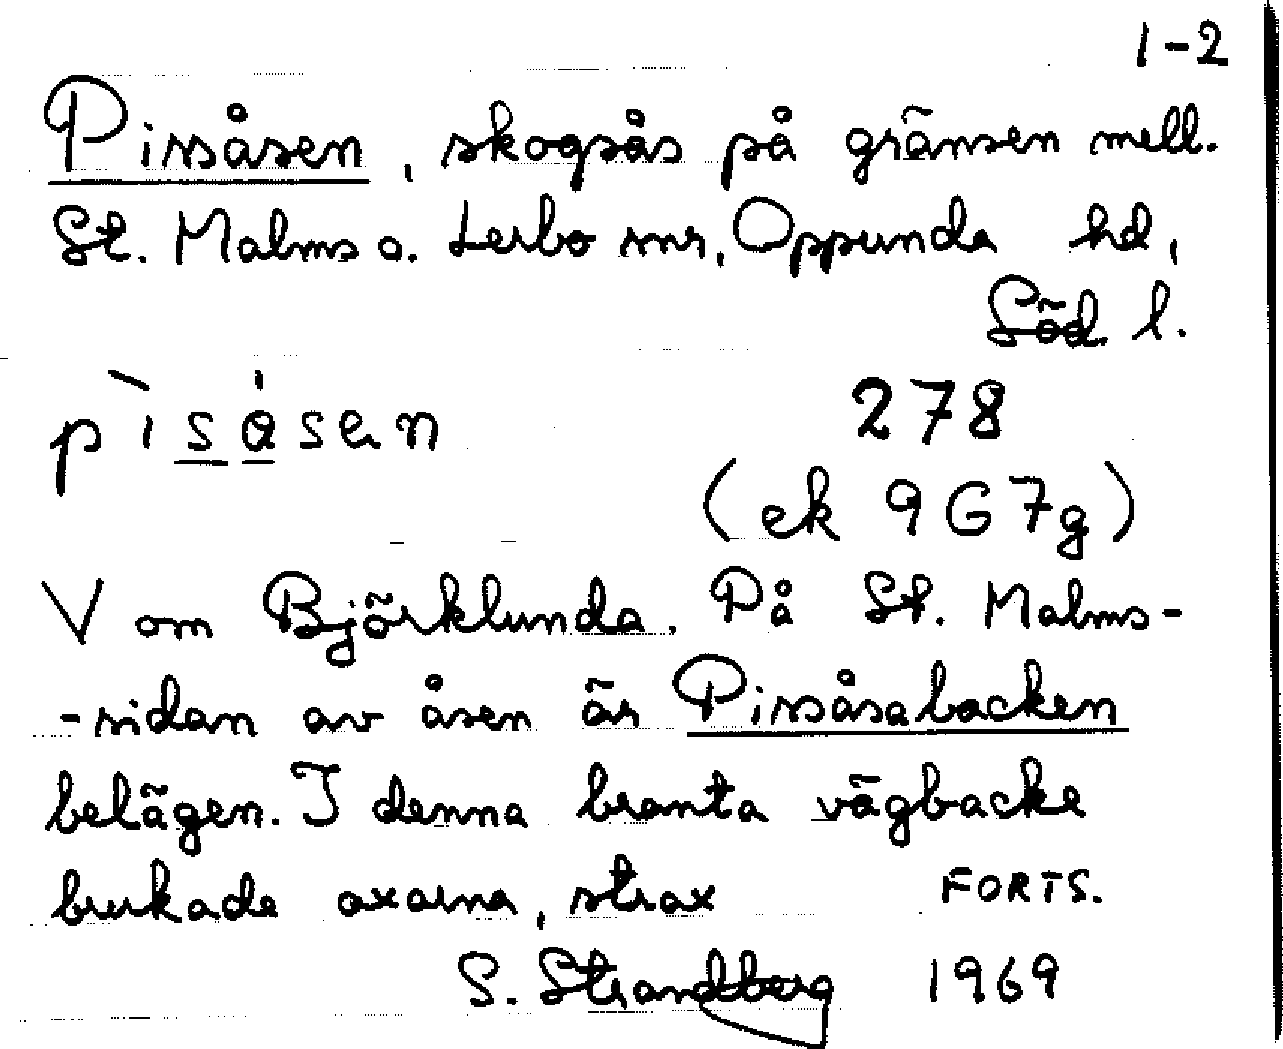 1-2
Pissåsen, skogsås på gränsen mell.
St. Malms o. Lerbo snr, Oppunda hd,
Söd. l.
pìsåsen 278
(ek 9G7g)
V om Björklunda. På St. Malms-
-sidan av åsen är Pissåsabacken
belägen. I denna branta vägbacke
brukade oxarna, strax FORTS.
S. Strandberg 1969